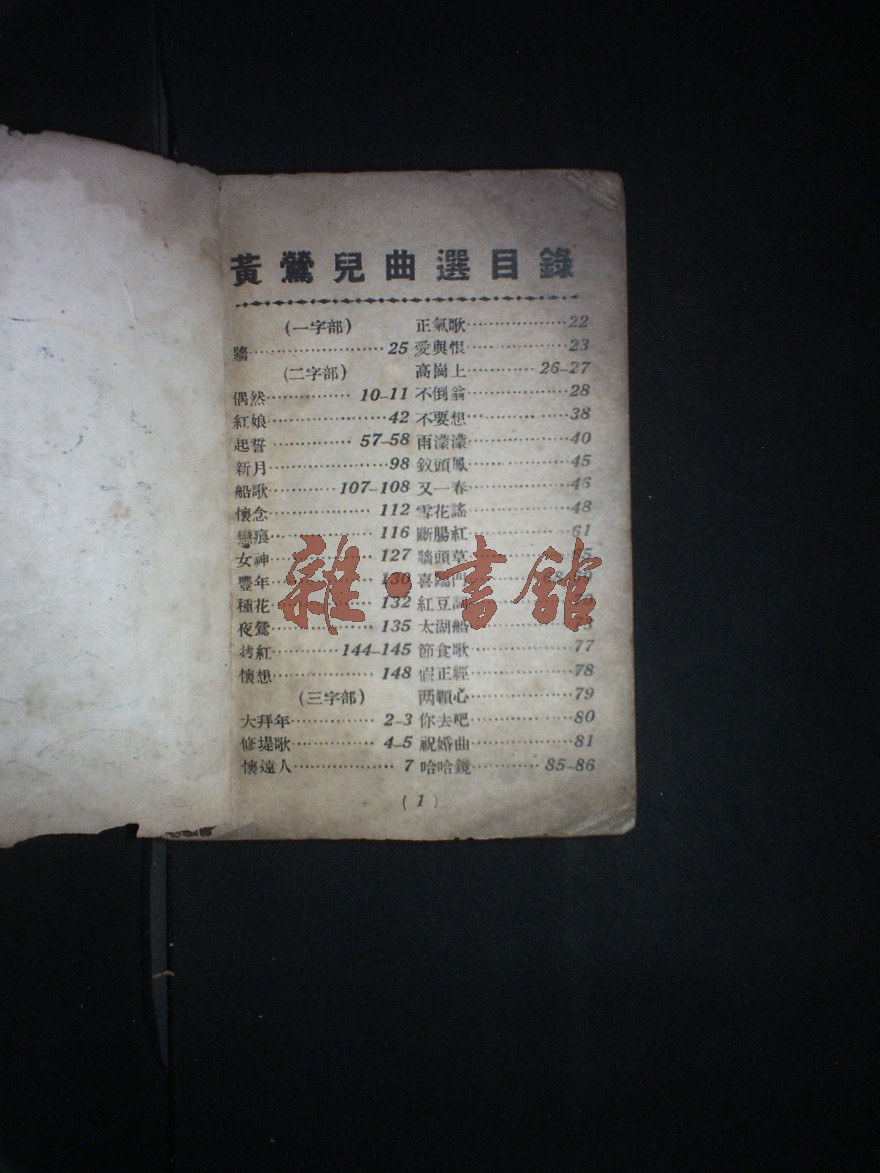 黃鶯兒曲選目錄
(一字部)
牆 25
(二字部)
偶然 10–11
紅娘 42
起誓 57–58
新月 98
船歌 107–108
懷念 112
戀痕 116
女神 127
豐年 130
種花 132
夜鶯 135
拷紅 144–145
懷想 148
(三字部)
大拜年 2–3
修堤歌 4–5
懷遠人 7
正氣歌 22
愛與恨 23
高崗上 26–27
不倒翁 28
不要想 38
雨濛濛 40
釵頭鳳 45
又一春 46
雪花謠 48
斷腸紅 61
牆頭草
喜臨門
紅豆詞
太湖船
節食歌 77
假正經 78
两顆心 79
你去吧 80
祝婚曲 81
哈哈鏡 85–86
(1)
雜·書館